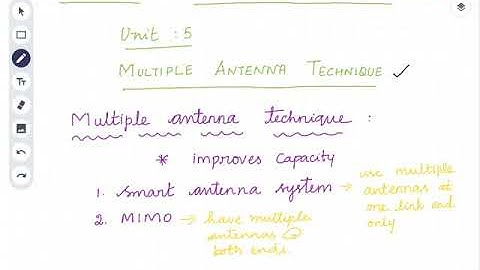 Unit : 5
MULTIPLE ANTENNA TECHNIQUE ✓
Multiple antenna technique :
* improves Capacity
1. smart antenna system → use multiple antennas at one link end only
2. MIMO → have multiple antennas @ both ends.
Tт